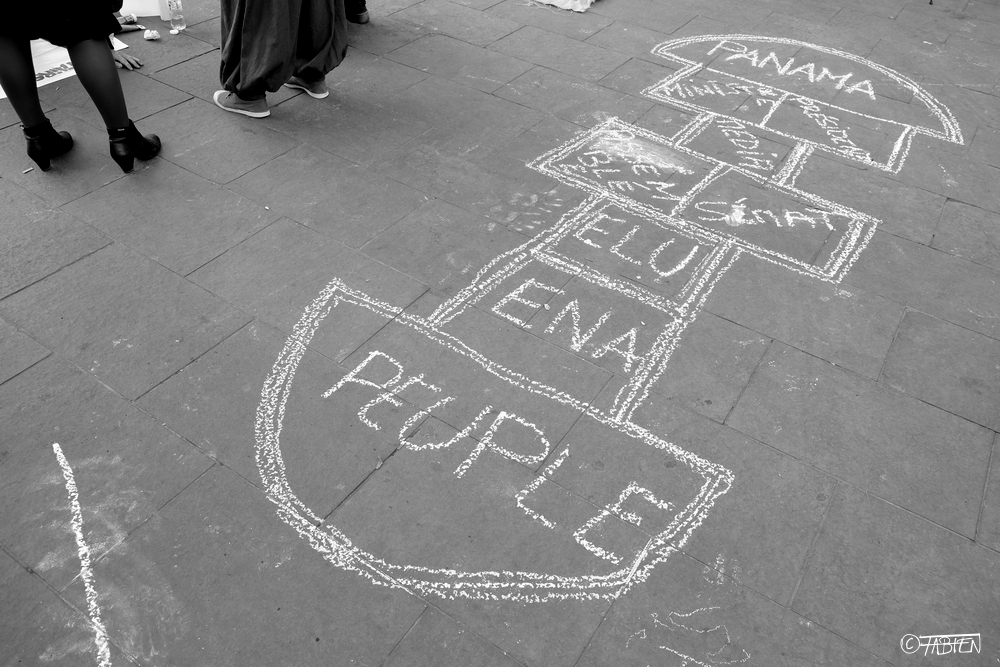 PANAMA
MINISTRE PRÉSIDENT
MEDEF
SÉNAT
ELU
ENA
PEUPLE
© FABIEN